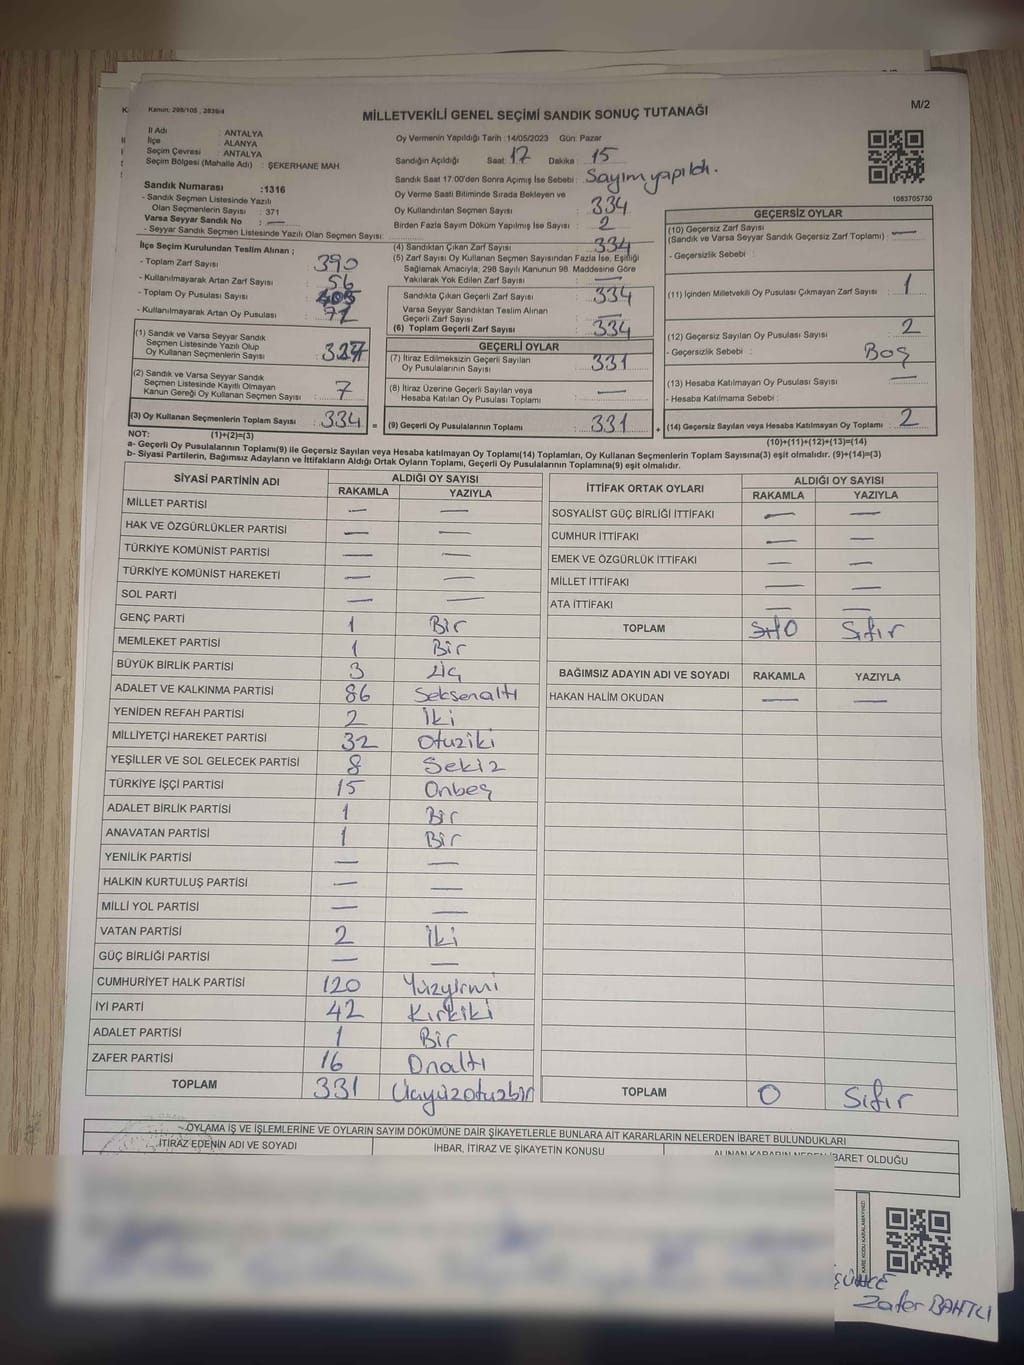 Kanun: 298/105 , 2839/4
MİLLETVEKİLİ GENEL SEÇİMİ SANDIK SONUÇ TUTANAĞI
M/2
İl Adı : ANTALYA
İlçe : ALANYA
Seçim Çevresi : ANTALYA
Seçim Bölgesi (Mahalle Adı) : ŞEKERHANE MAH.
Oy Vermenin Yapıldığı Tarih :14/05/2023 Gün: Pazar
Sandığın Açıldığı Saat: 17 Dakika: 15
Sandık Saat 17:00'den Sonra Açılmış İse Sebebi : Sayım yapıldı.
Oy Verme Saati Bitiminde Sırada Bekleyen ve
Oy Kullandırılan Seçmen Sayısı : 334
Birden Fazla Sayım Döküm Yapılmış İse Sayısı : 2
1083705730
Sandık Numarası :1316
- Sandık Seçmen Listesinde Yazılı
Olan Seçmenlerin Sayısı : 371
Varsa Seyyar Sandık No : —
- Seyyar Sandık Seçmen Listesinde Yazılı Olan Seçmen Sayısı:
İlçe Seçim Kurulundan Teslim Alınan ;
- Toplam Zarf Sayısı : 390
- Kullanılmayarak Artan Zarf Sayısı : 56
- Toplam Oy Pusulası Sayısı :
- Kullanılmayarak Artan Oy Pusulası :
(1) Sandık ve Varsa Seyyar Sandık
Seçmen Listesinde Yazılı Olup
Oy Kullanan Seçmenlerin Sayısı : 327
(2) Sandık ve Varsa Seyyar Sandık
Seçmen Listesinde Kayıtlı Olmayan
Kanun Gereği Oy Kullanan Seçmen Sayısı : 7
(3) Oy Kullanan Seçmenlerin Toplam Sayısı : 334 =
(4) Sandıktan Çıkan Zarf Sayısı : 334
(5) Zarf Sayısı Oy Kullanan Seçmen Sayısından Fazla İse, Eşitliği
Sağlamak Amacıyla, 298 Sayılı Kanunun 98. Maddesine Göre
Yakılarak Yok Edilen Zarf Sayısı : —
Sandıkta Çıkan Geçerli Zarf Sayısı : 334
Varsa Seyyar Sandıktan Teslim Alınan
Geçerli Zarf Sayısı : —
(6) Toplam Geçerli Zarf Sayısı : 334
GEÇERLİ OYLAR
(7) İtiraz Edilmeksizin Geçerli Sayılan
Oy Pusulalarının Sayısı : 331
(8) İtiraz Üzerine Geçerli Sayılan veya
Hesaba Katılan Oy Pusulası Toplamı : —
(9) Geçerli Oy Pusulalarının Toplamı : 331 +
GEÇERSİZ OYLAR
(10) Geçersiz Zarf Sayısı
(Sandık ve Varsa Seyyar Sandık Geçersiz Zarf Toplamı) : —
- Geçersizlik Sebebi :
(11) İçinden Milletvekili Oy Pusulası Çıkmayan Zarf Sayısı : 1
(12) Geçersiz Sayılan Oy Pusulası Sayısı : 2
- Geçersizlik Sebebi : Boş
(13) Hesaba Katılmayan Oy Pusulası Sayısı : —
- Hesaba Katılmama Sebebi :
(14) Geçersiz Sayılan veya Hesaba Katılmayan Oy Toplamı : 2
NOT: (1)+(2)=(3) (10)+(11)+(12)+(13)=(14)
a- Geçerli Oy Pusulalarının Toplamı(9) ile Geçersiz Sayılan veya Hesaba katılmayan Oy Toplamı(14) Toplamları, Oy Kullanan Seçmenlerin Toplam Sayısına(3) eşit olmalıdır. (9)+(14)=(3)
b- Siyasi Partilerin, Bağımsız Adayların ve İttifakların Aldığı Ortak Oyların Toplamı, Geçerli Oy Pusulalarının Toplamına(9) eşit olmalıdır.
SİYASİ PARTİNİN ADI ALDIĞI OY SAYISI
RAKAMLA YAZIYLA
MİLLET PARTİSİ — —
HAK VE ÖZGÜRLÜKLER PARTİSİ — —
TÜRKİYE KOMÜNİST PARTİSİ — —
TÜRKİYE KOMÜNİST HAREKETİ — —
SOL PARTİ — —
GENÇ PARTİ 1 Bir
MEMLEKET PARTİSİ 1 Bir
BÜYÜK BİRLİK PARTİSİ 3 Üç
ADALET VE KALKINMA PARTİSİ 86 Seksenaltı
YENİDEN REFAH PARTİSİ 2 İki
MİLLİYETÇİ HAREKET PARTİSİ 32 Otuziki
YEŞİLLER VE SOL GELECEK PARTİSİ 8 Sekiz
TÜRKİYE İŞÇİ PARTİSİ 15 Onbeş
ADALET BİRLİK PARTİSİ 1 Bir
ANAVATAN PARTİSİ 1 Bir
YENİLİK PARTİSİ — —
HALKIN KURTULUŞ PARTİSİ — —
MİLLİ YOL PARTİSİ — —
VATAN PARTİSİ 2 İki
GÜÇ BİRLİĞİ PARTİSİ — —
CUMHURİYET HALK PARTİSİ 120 Yüzyirmi
İYİ PARTİ 42 Kırkiki
ADALET PARTİSİ 1 Bir
ZAFER PARTİSİ 16 Onaltı
TOPLAM 331 Üçyüzotuzbir
İTTİFAK ORTAK OYLARI ALDIĞI OY SAYISI
RAKAMLA YAZIYLA
SOSYALİST GÜÇ BİRLİĞİ İTTİFAKI — —
CUMHUR İTTİFAKI — —
EMEK VE ÖZGÜRLÜK İTTİFAKI — —
MİLLET İTTİFAKI — —
ATA İTTİFAKI — —
TOPLAM 0 Sıfır
BAĞIMSIZ ADAYIN ADI VE SOYADI RAKAMLA YAZIYLA
HAKAN HALİM OKUDAN — —
TOPLAM 0 Sıfır
OYLAMA İŞ VE İŞLEMLERİNE VE OYLARIN SAYIM DÖKÜMÜNE DAİR ŞİKAYETLERLE BUNLARA AİT KARARLARIN NELERDEN İBARET BULUNDUKLARI
İTİRAZ EDENİN ADI VE SOYADI İHBAR, İTİRAZ VE ŞİKAYETİN KONUSU ALINAN KARARIN NEDEN İBARET OLDUĞU
Zafer BAHTLI